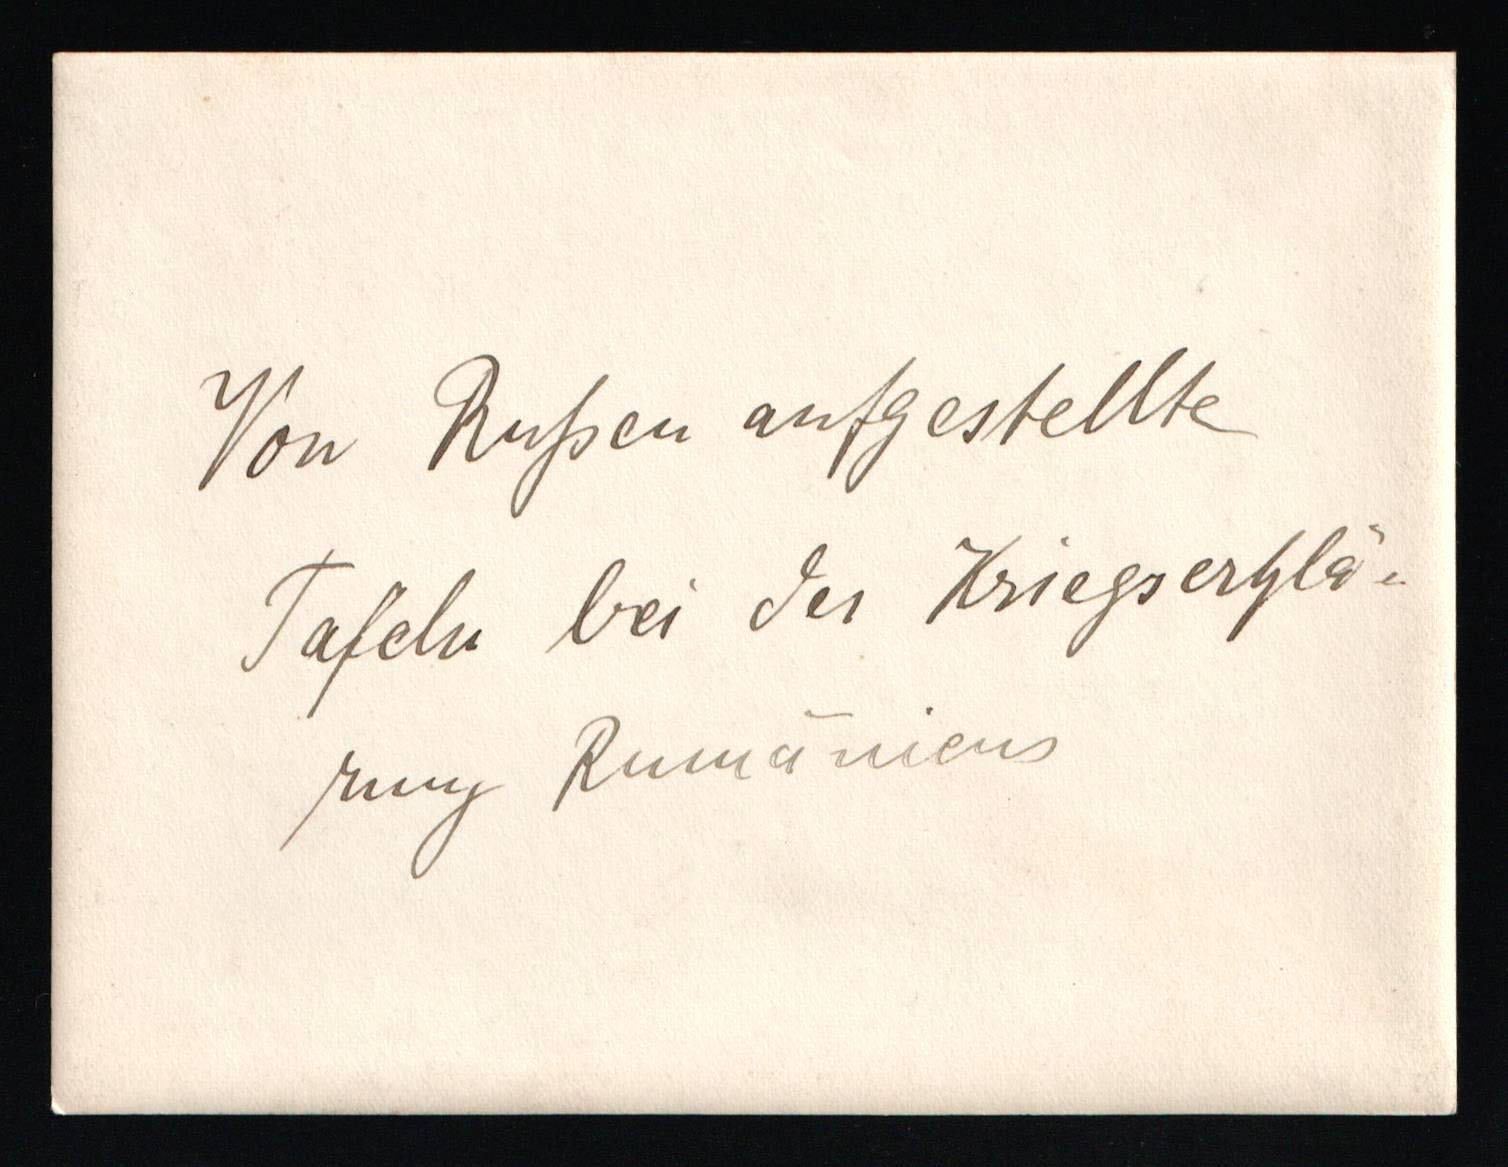 Von Rußen aufgestellte
Tafeln bei der Kriegserklä-
rung Rumäniens